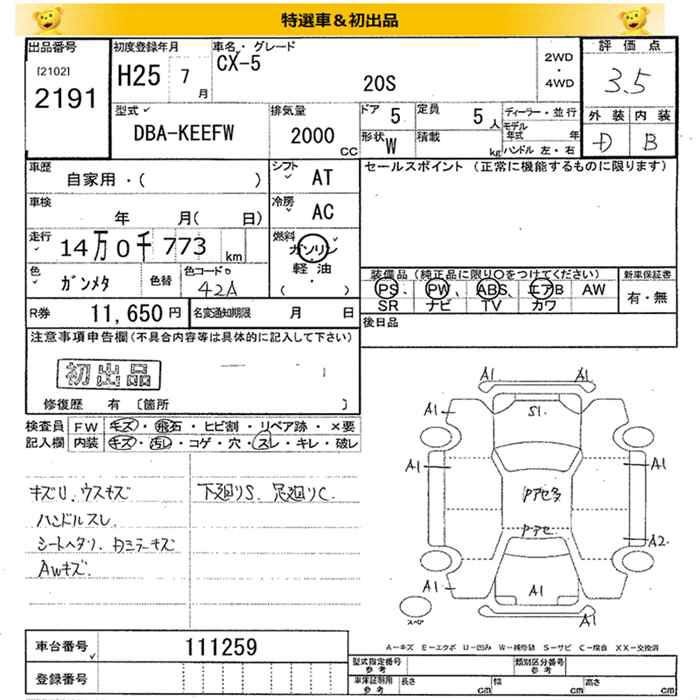 特選車＆初出品
出品番号
[2102]
2191
初度登録年月
H25 7 月
車名・グレード
CX-5
20S
2WD
・
4WD
評価点
3.5
外装 内装
D B
型式
DBA-KEEFW
排気量
2000 CC
ドア 5
定員 5 人
形状 W
積載 kg
ディーラー・並行
モデル
年式 年
ハンドル 左・右
車歴
自家用・( )
シフト
AT
セールスポイント (正常に機能するものに限ります)
車検
年 月( 日)
冷房
AC
走行
14万0千773 km
燃料
ガソリン
軽油
( ・ )
色
ガンメタ
色替
色コードo
42A
装備品 (純正品に限り〇をつけてください)
PS、 PW、 ABS、 エアB AW
SR ナビ TV カワ
新車保証書
有・無
R券 11,650 円
名変通知期限 月 日
後日品
注意事項申告欄(不具合内容等は具体的に記入して下さい)
初出品
修復歴 有 〔箇所 〕
検査員 FW キズ・飛石・ヒビ割・リペア跡・×要
記入欄 内装 キズ・汚レ・コゲ・穴・スレ・キレ・破レ
キズU、ウスキズ
ハンドルスレ、
シートヘタリ、カミラーキズ
Awキズ、
下廻りS、足廻りC、
A1 A1
A1 S1. A1
A1 A1
Pアセ多
Pアセ
A2
A1 A1 A1
スペア
A－キズ E－エクボ U－凹み W－補修跡 S－サビ C－腐食 XX－交換済
車台番号 111259
登録番号
型式指定番号
参考
類別区分番号
参考
車庫証明用
参考
長さ cm 幅 cm 高さ cm